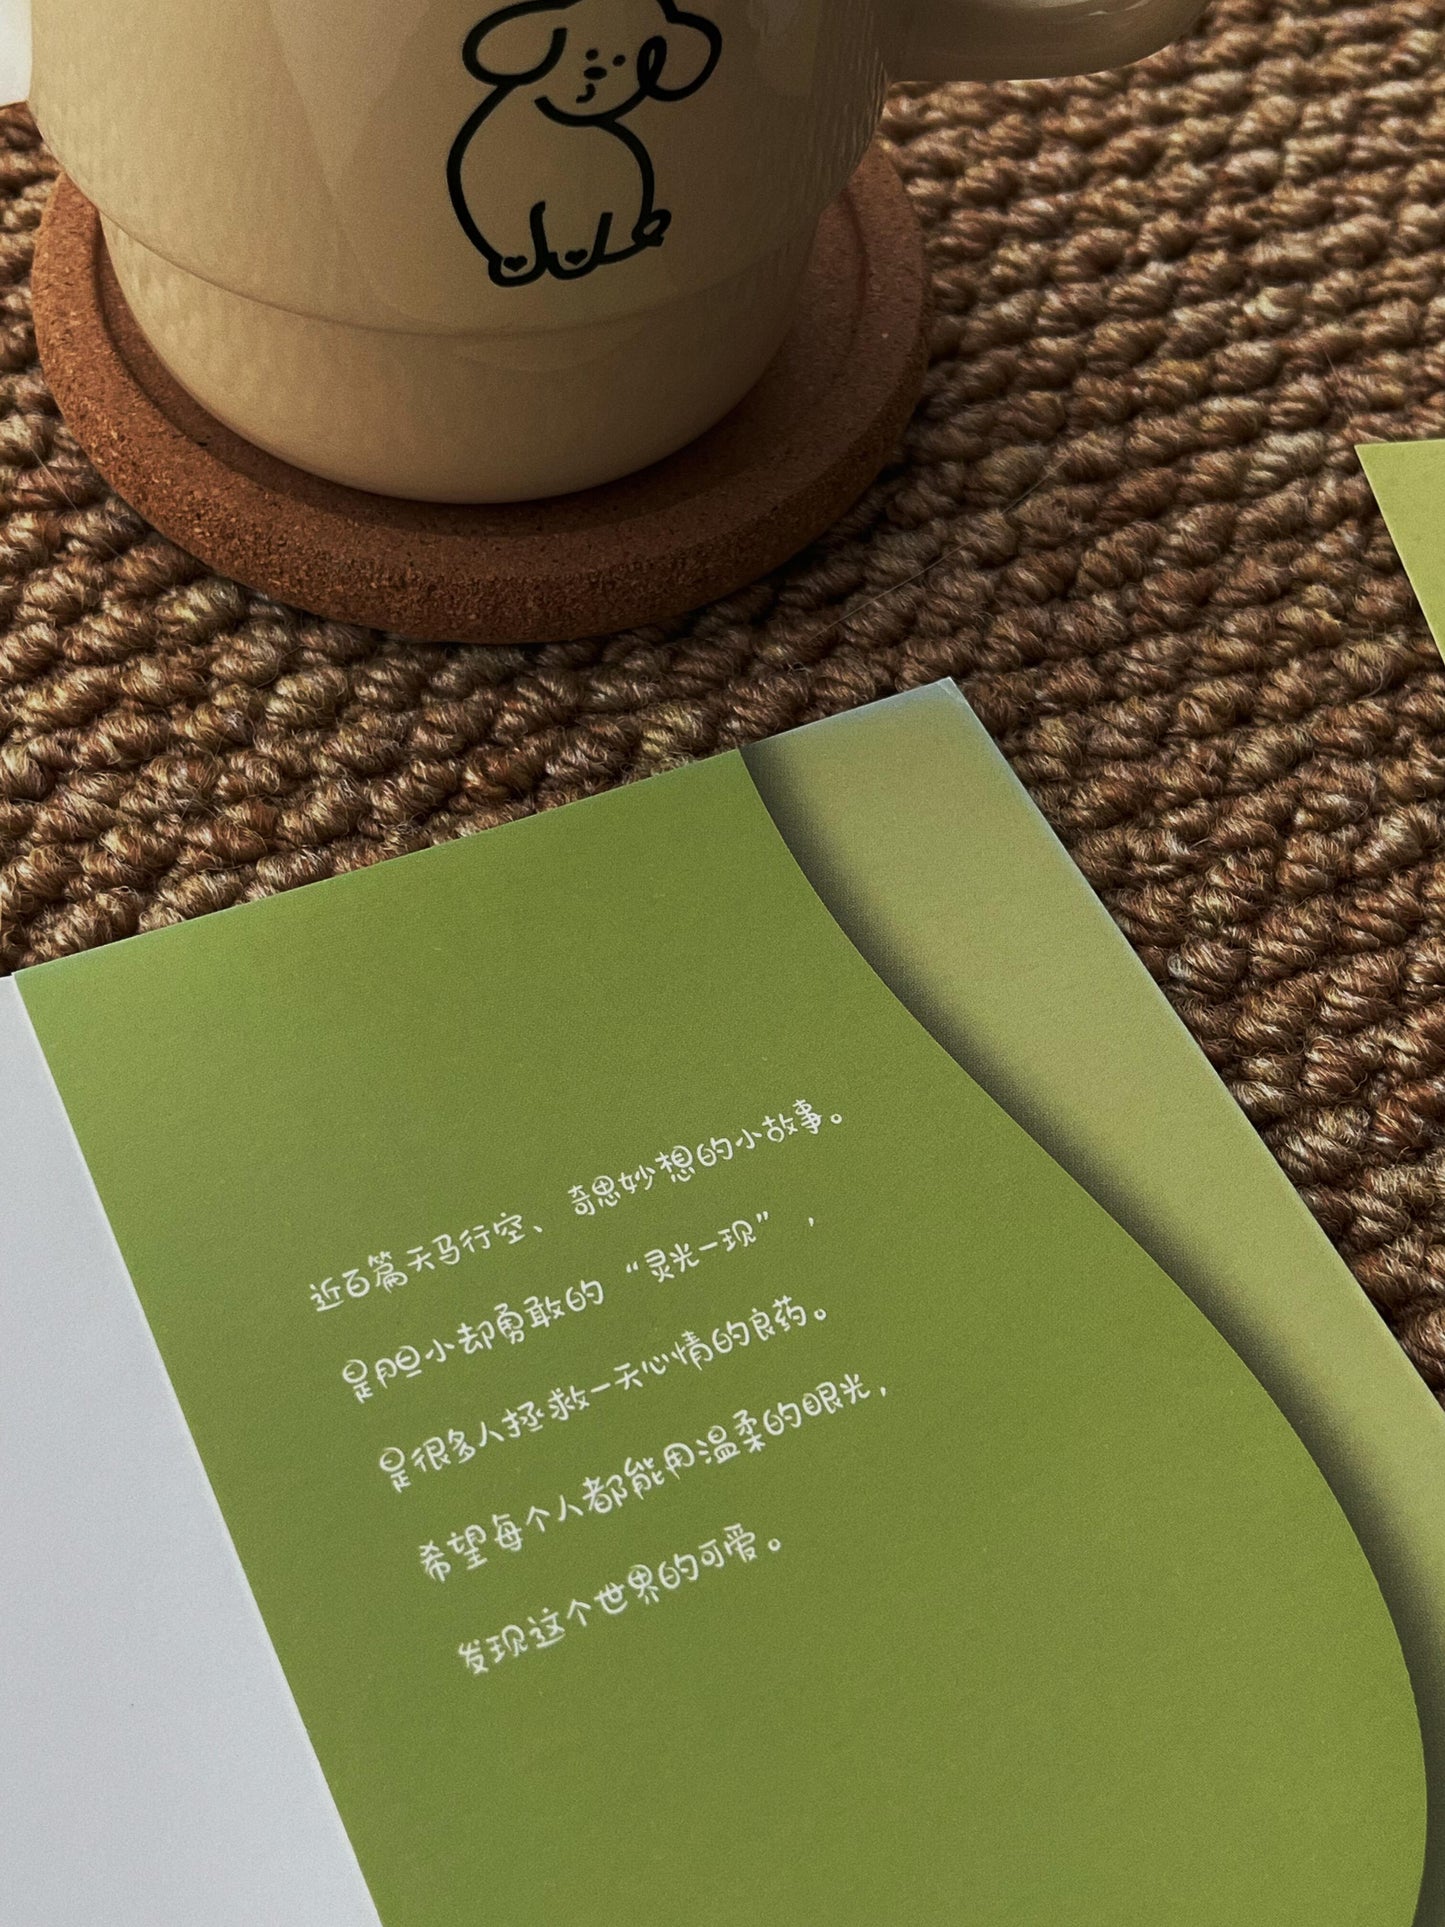 近百篇天马行空、奇思妙想的小故事。
是胆小却勇敢的“灵光一现”，
是很多人拯救一天心情的良药。
希望每个人都能用温柔的眼光，
发现这个世界的可爱。